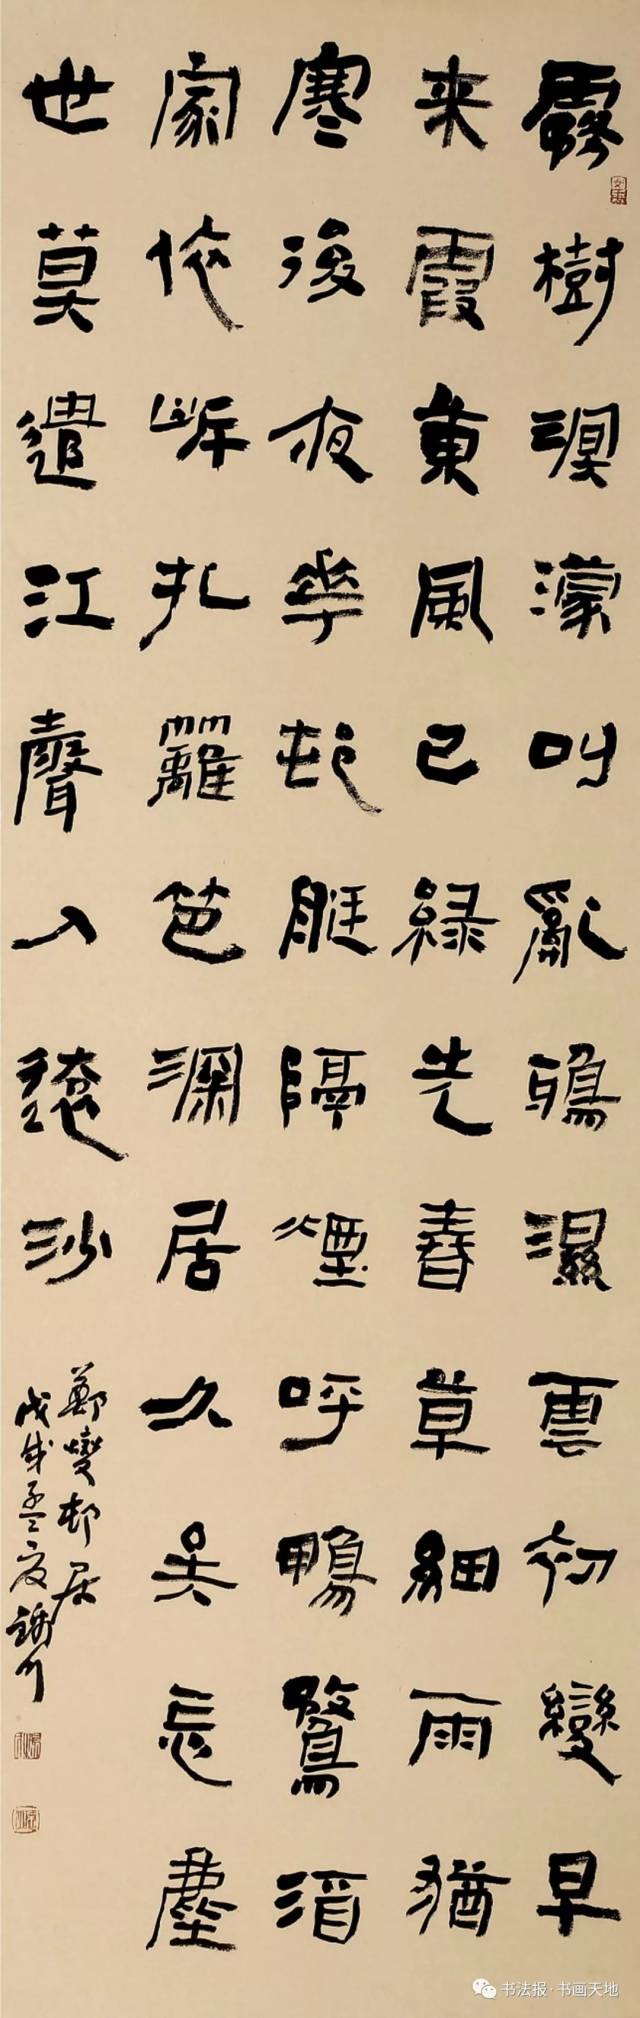 霧樹溟濛叫亂鴉濕雲初變早
来霞東風已綠先春草細雨猶
寒後夜華邨艇隔煙呼鴨鶩酒
家依岸扎籬笆深居久矣忘塵
世莫遣江聲入遠沙
鄭燮邨居
戊戌孟夏
书法报·书画天地